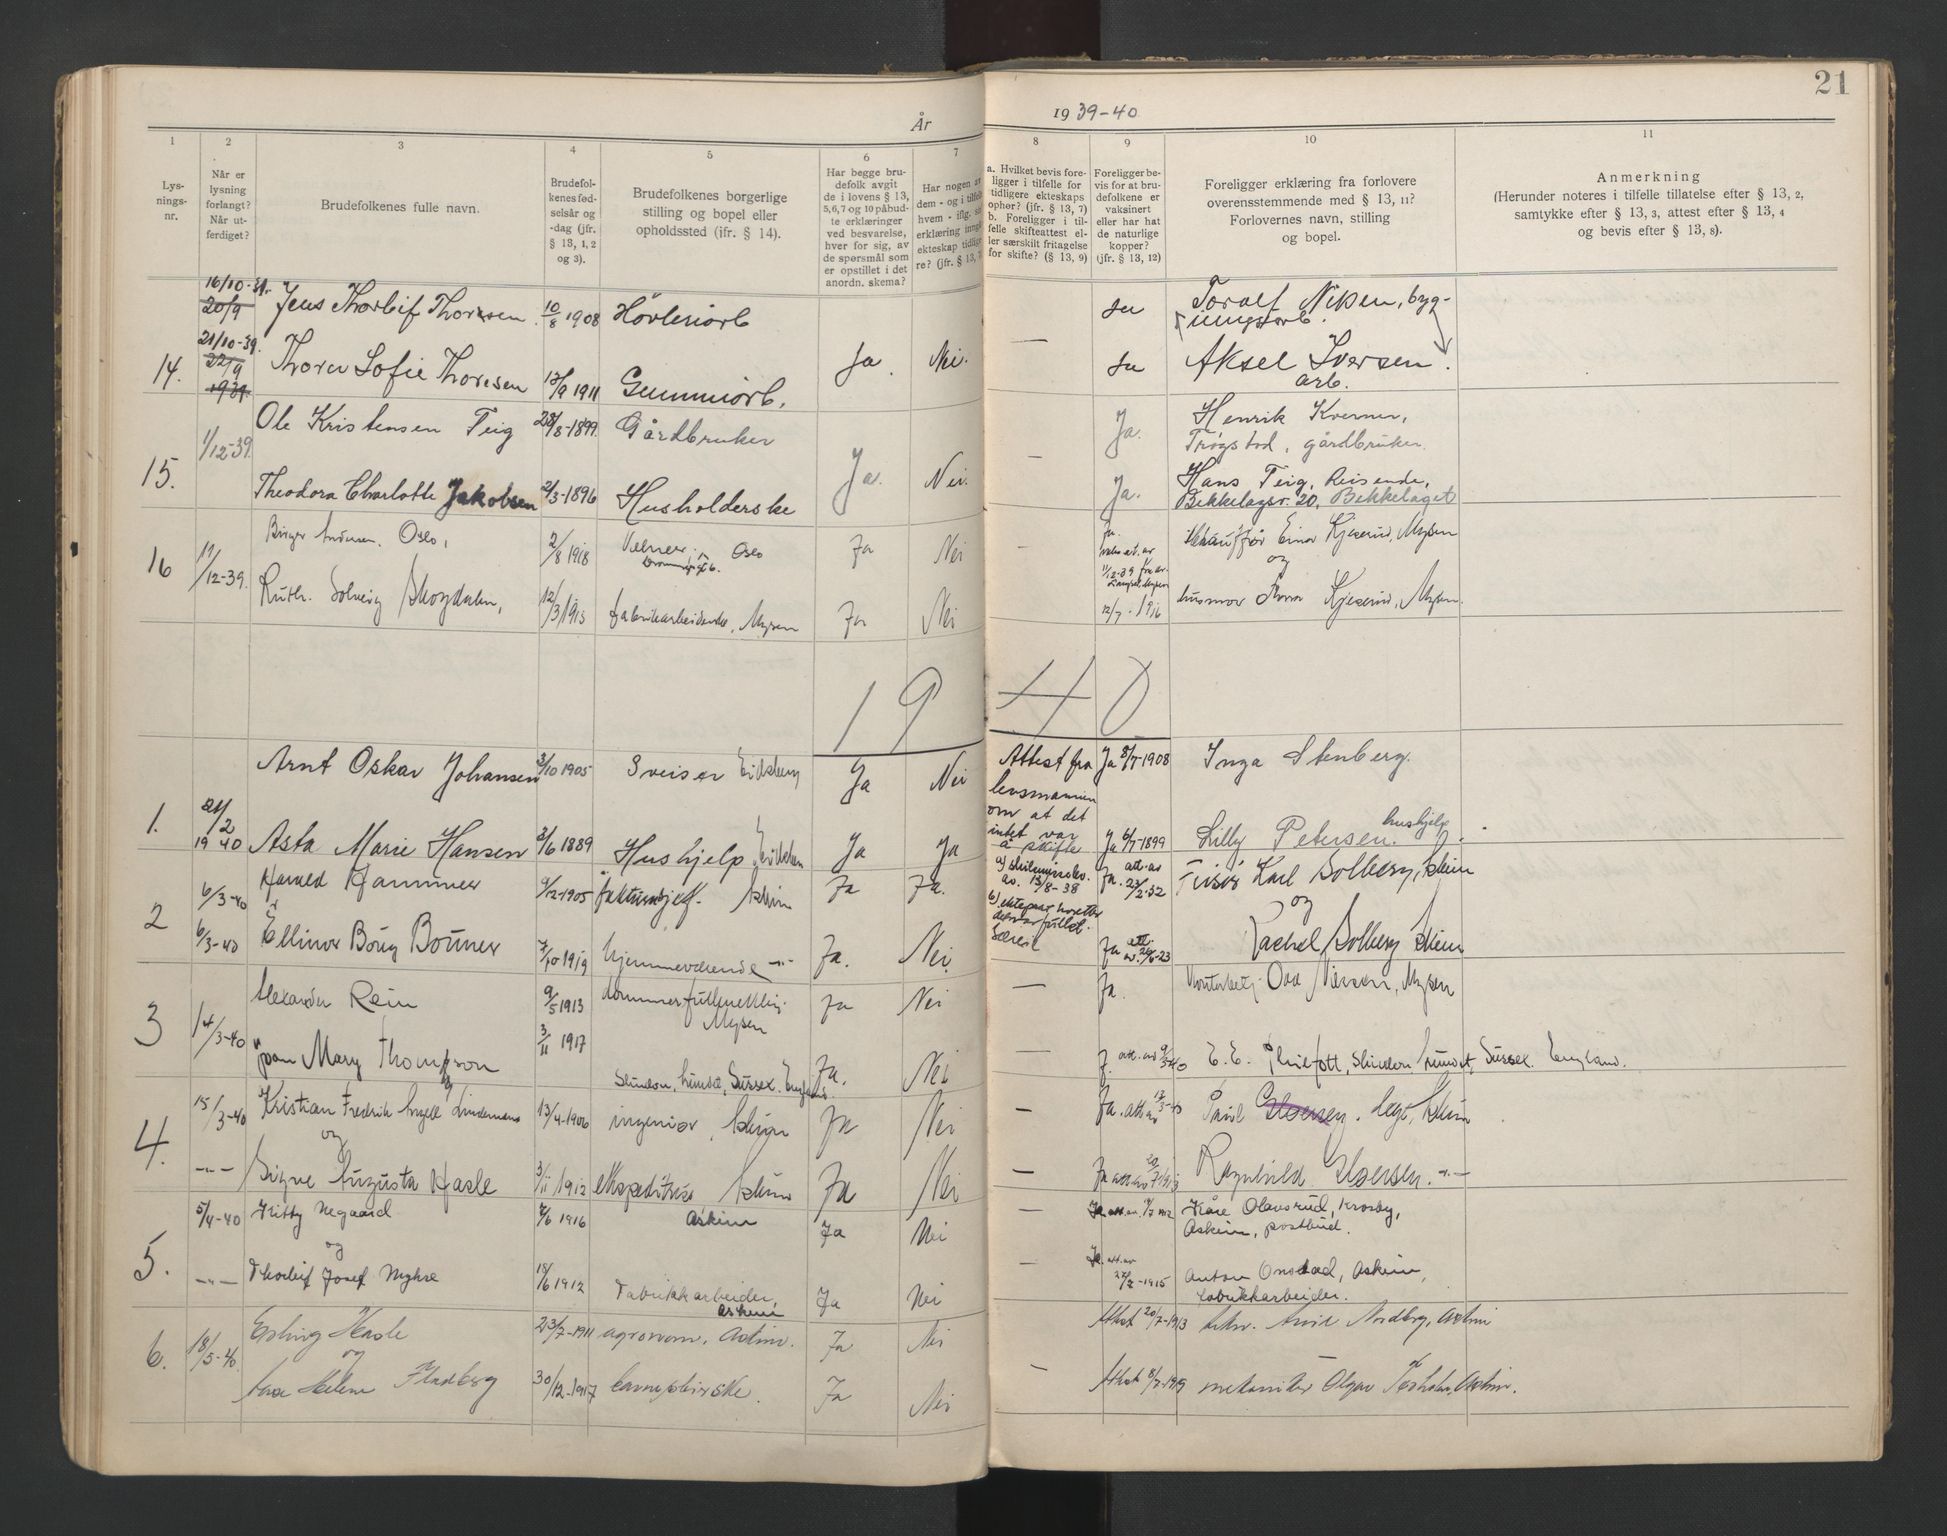 21
År 1939-40
1 2 3 4 5 6 7 8 9 10 11
Lysningsnr.
Når er lysning forlangt? Når utferdiget?
Brudefolkenes fulle navn.
Brudefolkenes fødselsår og -dag (jfr. § 13, 1, 2 og 3).
Brudefolkenes borgerlige stilling og bopel eller opholdssted (ifr. § 14).
Har begge brudefolk avgit de i lovens § 13, 5,6,7 og 10 påbudte erklæringer ved besvarelse, hver for sig, av de spørsmål som er opstillet i det anordn. skema?
Har nogen av dem - og i tilfelle hvem - iflg. sin erklæring inngått ekteskap tidligere? (jfr. § 13,
a. Hvilket bevis foreligger i tilfelle for tidligere ekteskaps opher? (jfr. § 13, 7)
b. Foreligger i tilfelle skifteattest eller særskilt fritagelse for skifte? (§ 13, 9)
Foreligger bevis for at brudefolkene er vaksinert eller har hat de naturlige kopper? (jfr. § 13, 12)
Foreligger erklæring fra forlovere overensstemmende med § 13, 11? Forlovernes navn, stilling og bopel.
Anmerkning
(Herunder noteres i tilfelle tillatelse efter § 13, 2, samtykke efter § 13, 3, attest efter § 13, 4 og bevis efter § 13, 8).
16/10-39. 20/9 Jens Thorleif Thoresen. 10/8 1908 Hövleriarb Ja Toralf Nilsen, bygningsarb.
14. 21/10-39. 22/9 1939 Thora Sofie Thoresen 13/9 1911 Gummiarb. Ja. Nei. — Ja Aksel Iversen. arb.
Ole Kristensen Teig 28/8-1899. Gårdbruker Ja. Henrik Kverner, Trøgstad, gårdbruker.
15. 1/12-39. Theodora Charlotte Jakobsen 2/3-1896 Husholderske Ja. Nei. — Ja. Hans Teig, Reisende, Bekkelagsv. 20, Bekkelaget
16 11/12-39. Birger Andersen, Oslo, 2/8 1918 Oslo Ja Nei — Ja. Einar Kjeserud, Mysen
og
Ruth Solveig Skogdalen, 12/3 1915 fabrikarbeiderske, Mysen Ja Nei 12/7-1916 husmor Kjeserud, Mysen.
1940
Arnt Oskar Johansen 3/10 1905 Sveiser Eidsberg Ja Nei Attest fra lensmannen om at det intet var å skifte Ja 8/7-1908 Inga Stenberg.
1. 21/2 1940 Asta Marie Hansen 3/6 1889 Hushjelp, Eidsberg Ja Ja Ja 6/7-1899 Lilly Petersen. hushjelp
2 6/3-40 Harald Hammer 9/12-1905 Askim Ja Ja. a) skilsmissebev. av. 13/8-38 Ja. att. av 23/2-32 Frisør Karl Solberg, Askim
og
6/3-40 Ellinor Borg Bonner 7/10 1919 hjemmeværende —"— Ja. Nei. Ja att. av. 26/6-23 Rachel Solberg Askim
3 14/3-40 Alexander Rein 9/5 1913 dommerfullmektig. Mysen Ja Nei — Ja. Kontorbetj. Odd Nilsen, Mysen
Joan Mary Thompson 3/11 1917 Slindon, Arundel, Sussex. England. Ja. Nei — J. att. av 9/3-40 E. E. Philpott, Slindon Arundel, Sussex. England.
4. 15/3-40 Kristian Fredrik Angell Lindemann 13/4-1906 ingeniør, Askim Ja Nei — Ja. att av 12/3-40 Paul Glosersen. Askim
og
—"— Signe Augusta Hasle 3/11/1912 ekspeditrise Askim Ja Nei — Ja att av 20/7 1913 Ragnhild Glosersen. —"—
5. 5/4-40 Kitty Negaard 7/6 1916 Askim Ja Nei — Ja. att. av. Kåre Olavsrud, Krosby, Askim, postbud.
og
—"— Thorleif Josef Myhre 18/6 1912 Fabrikkarbeider, Askim Ja Nei — Ja. att. av 22/7-1915 Anton Onstad, Askim, fabrikkarbeider.
6. 18/5-40. Erling Hasle 23/7-1911 agronom, Askim. Ja Nei Attest 20/7-1913 Arvid Nordberg, Askim
og
Aase Helene Fladberg 30/12-1917 Ja Nei — Attest 8/7-1919 mekaniker Askim.